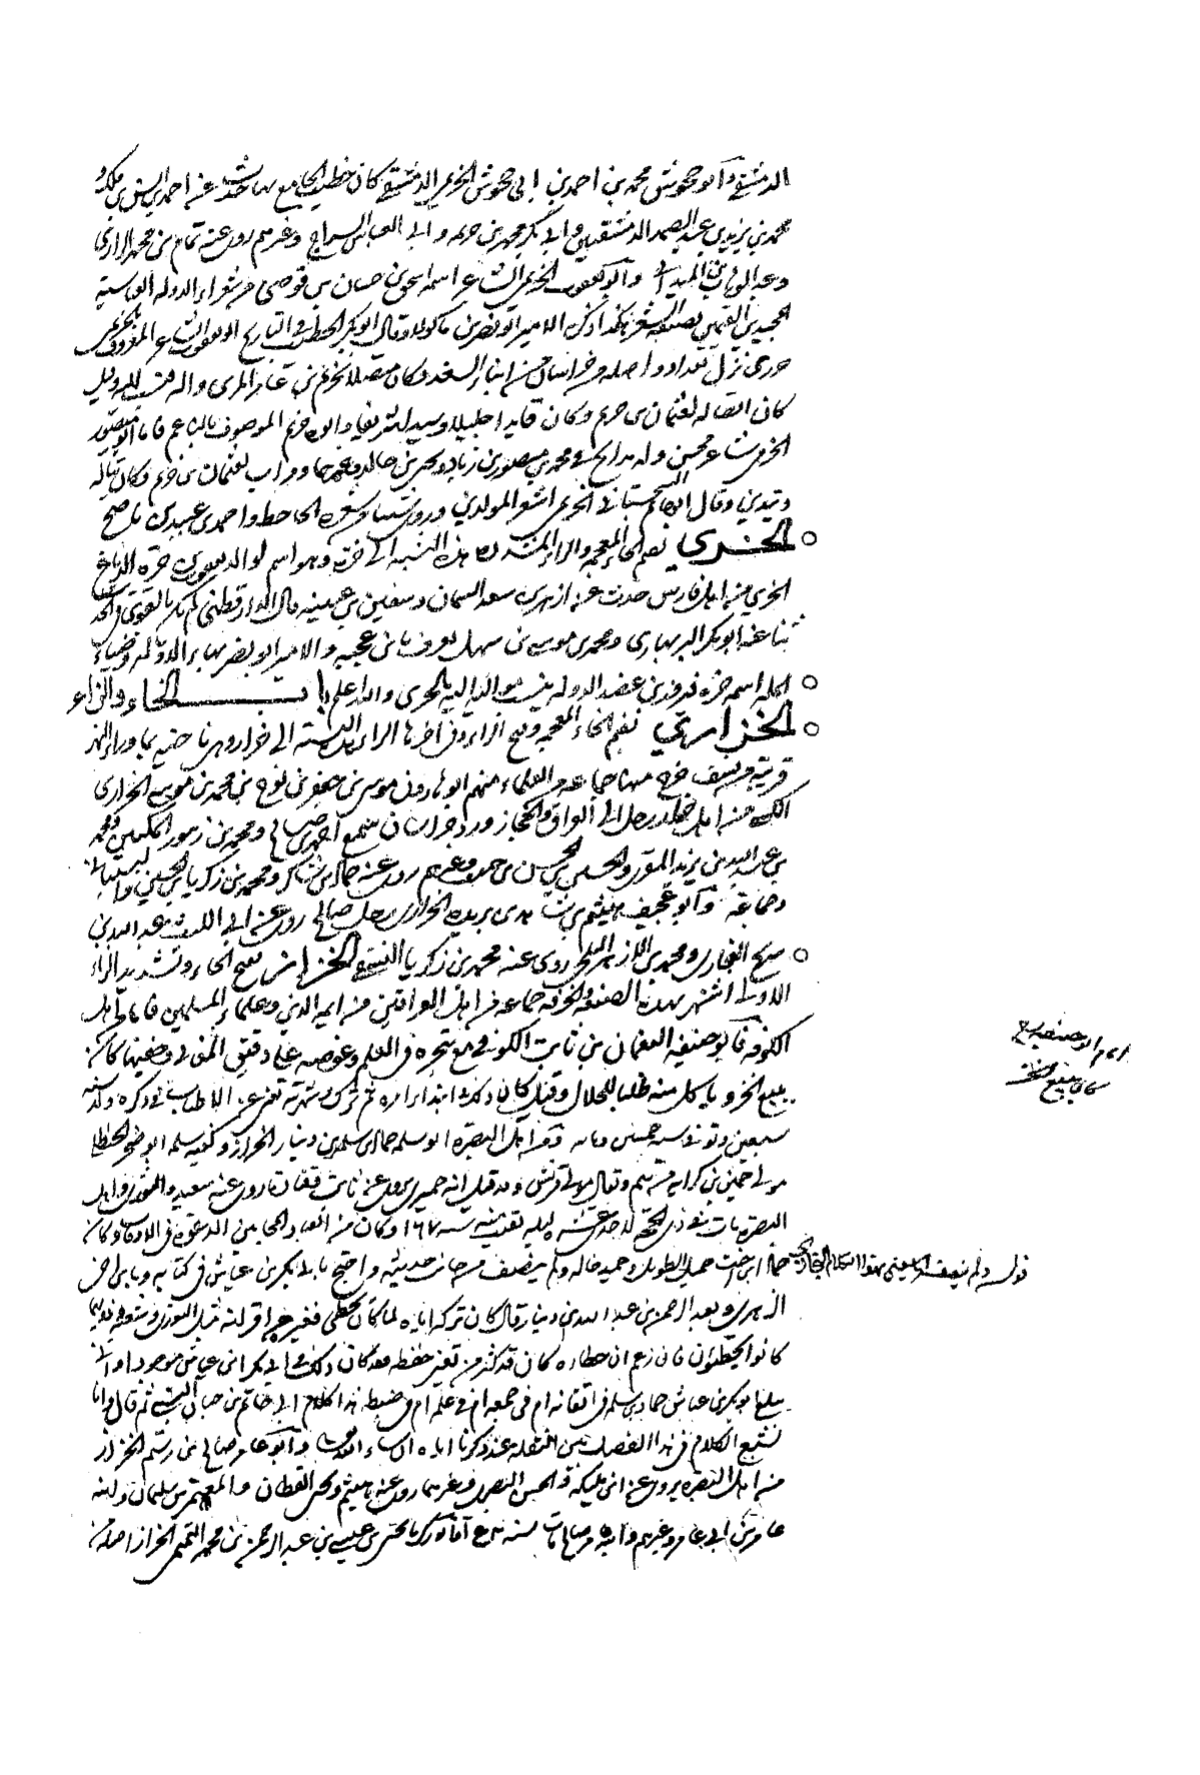 الدمشقي وأبو جحوش محمد بن احمد بن ابي جحوش الخريمي الدمشقي كان خطيب الجامع بها حدث عنه احمد بن انس بن ملك و
محمد بن يزيد بن عبد الصمد الدمشقيين وابي بكر محمد بن خريم وابي العباس السراج وغيرهم روى عنه تمام بن محمد الرازي
وعبد الوهاب بن الميداني وأبو يعقوب الخريمي الشاعر اسمه اسحق بن حسان بن قوهي من شعراء الدوله العباسيه
المجيدين القيمين بصنعة الشعر هكذا ذكره الامير ابو نصر بن ماكولا وقال ابو بكر الخطيب في التاريخ ابو يعقوب الشاعر المعروف بالخريمي
جزري نزل بغداد واصله من خراسان من ابناء السغد وكان متصلا بخريم بن عامر المري واله فنسب اليه وقيل
كان اتصاله بعثمان بن خريم وكان قايدا جليلا وسيدا شريفا وابوه خريم الموصوف بالناعم فاما ابو منصور
الخريمي شاعر محسن وله مدايح في محمد بن منصور بن زياد ويحيى بن خالد وغيرهما وعمران بعثمان بن خريم وكان يقال له
وقال ابو حاتم السجستاني الخريمي اشعر المولدين وروى شيئا من شعره الجاحظ واحمد بن عبيد بن ناصح
الخرزي بضم الخاء المعجمه والراء المشدده هذه النسبه الى خره وهو اسم لوالد يعقوب بن خره الدباغ
الخري من اهل فارس حدث عن ازهر بن سعد السمان وسفين بن عيينه قال الدارقطني لم يكن بالقوى في الحديث
ثنا عنه ابو بكر البربهاري ومحمد بن موسى بن سهل يعرف بابن عجيبه والامير ابو نصر بهاء الدوله وضياء
المله اسمه خره فيروز بن عضد الدوله ينسب مواليه اليه بالخري والله اعلم باب الخاء والزاء
الخزاري بضم الخاء المعجمه وفتح الزاء وفي آخرها الراء هذه النسبه الى خزار وهي ناحيه بما وراء النهر
قريبه من نسف خرج منها جماعه من العلماء منهم ابو هارون موسى بن جعفر بن نوح بن محمد بن موسى الخزاري
الكسي من اهل خزار رحل الى العراق والحجاز وورد خراسان سمع احمد بن صالح ومحمد بن زنبور المكيين ومحمد
بن عبد الله بن يزيد المقري والحسين بن الحسن بن حرب وغيرهم روى عنه حماد بن شاكر ومحمد بن زكريا بن الحسين والنسفيان
وجماعه وأبو عجيف هيثم بن شاهد بن بريده الخزاري رجل صالح روى عن ابي الليث عبد الله بن
سريج البخاري ومحمد بن الازهر البلخي روى عنه محمد بن زكريا النسفي الخزاز بفتح الخاء وتشديد الزاء
الاولى اشتهر بهذه الصنعة والحرفه جماعه من اهل العراقين من ايمه الدين وعلماء المسلمين فاما من اهل
الكوفه فابو حنيفه النعمان بن ثابت الكوفي مع تبحره في العلم وغوصه على دقيق المعاني وخفيها كان
يبيع الخز وياكل منه طلبا للحلال وقيل كان ذلك في ابتداء امره ثم ترك وشهرته تغني عن الاطناب في ذكره ولد سنه
سبعين وتوفي سنه خمسين ومايه ومن اهل البصره ابو سلمه حماد بن سلمه بن دينار الخزاز وكنيه سلمه ابو صخر الحنظلي
مولى حميري بن كرامه من تميم ويقال مولى قريش وقد قيل انه حميري يروى عن ثابت وقتاده روى عنه سعيد والثوري واهل
البصره مات في ذي الحجه لاحد عشر ليله بقيت سنه ١٦٧ وكان من العباد المجابين الدعوه في الاوقات وكان
حماد ابن اخت حميد الطويل وحميد خاله ولم ينصف من جانب حديثه واحتج بابي بكر بن عياش في كتابه وبابن اخي
الزهري وبعبد الرحمن بن عبد الله بن دينار قال كان تركه اياه لما كان يخطي فغيره من اقرانه مثل الثوري وشعبه ودونهما
كانوا يخطئون فان زعم ان خطاءه كان قد كثر من تغير حفظه فقد كان ذلك في ابي بكر ابن عياش موجودا وانى
يبلغ ابو بكر بن عياش حماد بن سلمه في اتقانه ام في جمعه ام في علمه ام في ضبطه هذا كلام ابي حاتم بن حبان البستي ثم قال وانا
نشبع الكلام في هذا الفصل بين النقله عند ذكرنا اياه ان شاء الله وأبو عامر صالح بن رستم الخزاز
من اهل البصره يروى عن ابن ابي مليكه والحسن البصري وغيرهما روى عنه هيثم ويحيى القطان والمعتمر بن سليمان وابنه
عامر بن ابي عامر وغيرهم وابو زكريا يحيى بن عيسى بن عبد الرحمن بن محمد التميمي الخزاز اصله من
امام ابو حنيفه
كان يبيع الخز
قوله ولم ينصف يعني بهذا الكلام البخاري